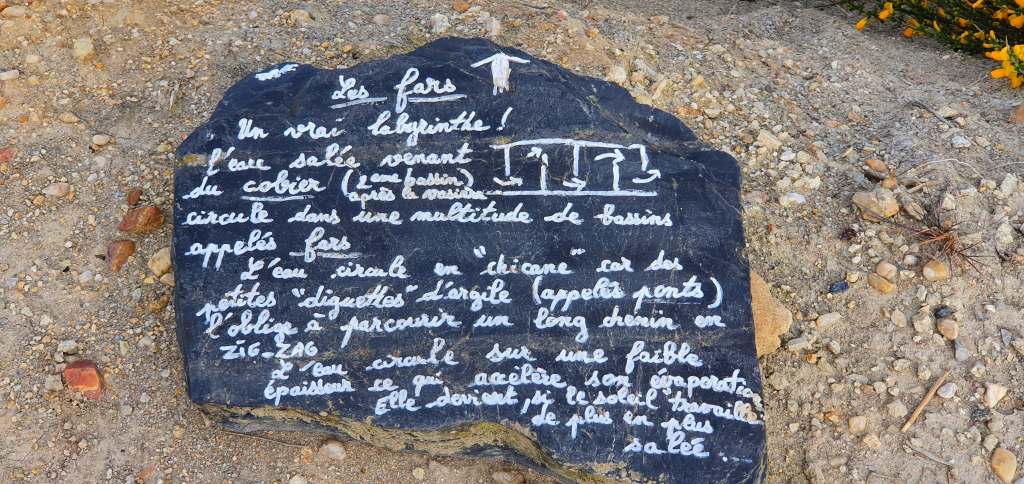 Les fars
Un vrai labyrinthe !
l'eau salée venant
du cobier (2ème bassin)
après la vasière
circule dans une multitude de bassins
appelés fars
L'eau circule en "chicane" car des
petites "diguettes" d'argile (appelés ponts)
l'oblige à parcourir un long chemin en
ZIG-ZAG
L'eau circule sur une faible
épaisseur ce qui accélère son évaporation
Elle devient, si le soleil travaille
de plus en plus
salée ...